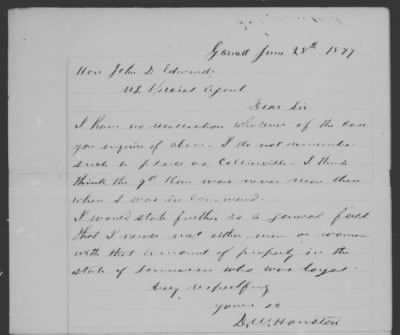 Garnett June 28th 1877
Hon John D Edwards
U.S. Special Agent
Dear Sir
I have no recollection whatever of the case
you enquire of above. I do not remember
such a place as Collierville. I think
think the 9th Kan was never near there
when I was in Command.
I would state further as a general fact
that I never met either man or woman
with that amount of property in the
state of Tennessee who was loyal.
Very respectfuly
yours &c
D. W. Houston